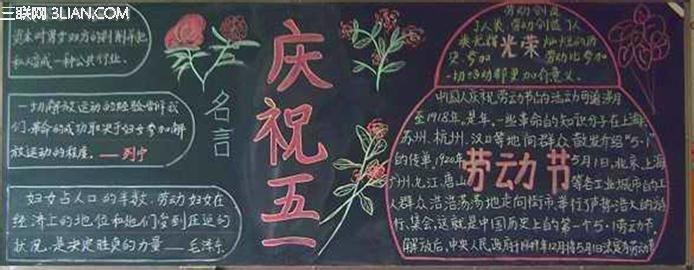 三联网 3LIAN.COM
私人
一种公共行业。
一切解放运动的经验告诉我
们,革命的成功取决于妇女参加解
放运动的程度。——列宁
妇女占人口的半数,劳动妇女在
经济上的地位和她们受到压迫的
状况,是决定胜负的力量——毛泽东
名言
庆祝五一
劳动创造
了人类,劳动创造了人
类光辉灿烂的历
史,参加劳动比参加
一切活动都更加有意义。
光荣
中国人庆祝劳动节的活动可追溯
至1918年,是年,一些革命的知识分子在上海
苏州、杭州、汉口等地向群众散发介绍“5·1”
的传单。1920年5月1日,北京、上海
广州、九江、唐山等各工业城市的工
人群众浩浩荡荡地走向街市、举行了声势浩大的游
行、集会,这就是中国历史上的第一个5·1劳动节,
解放后,中央人民政府于1949年12月将5月1日法定为劳动节
劳动节